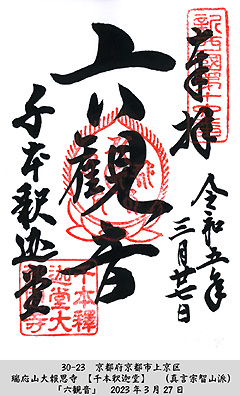 新西國第十六番
奉拝
令和五年
三月廿七日
六観音
千本釈迦堂
千本釋
迦堂大
報恩寺
30-23　京都府京都市上京区
瑞応山大報恩寺　【千本釈迦堂】　（真言宗智山派）
「六観音」　2023年3月27日